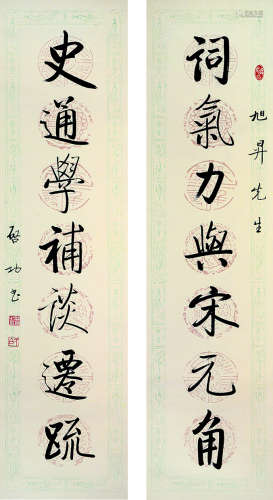 旭昇先生
詞氣力與宋元角
史通學補談遷疏
啓功書